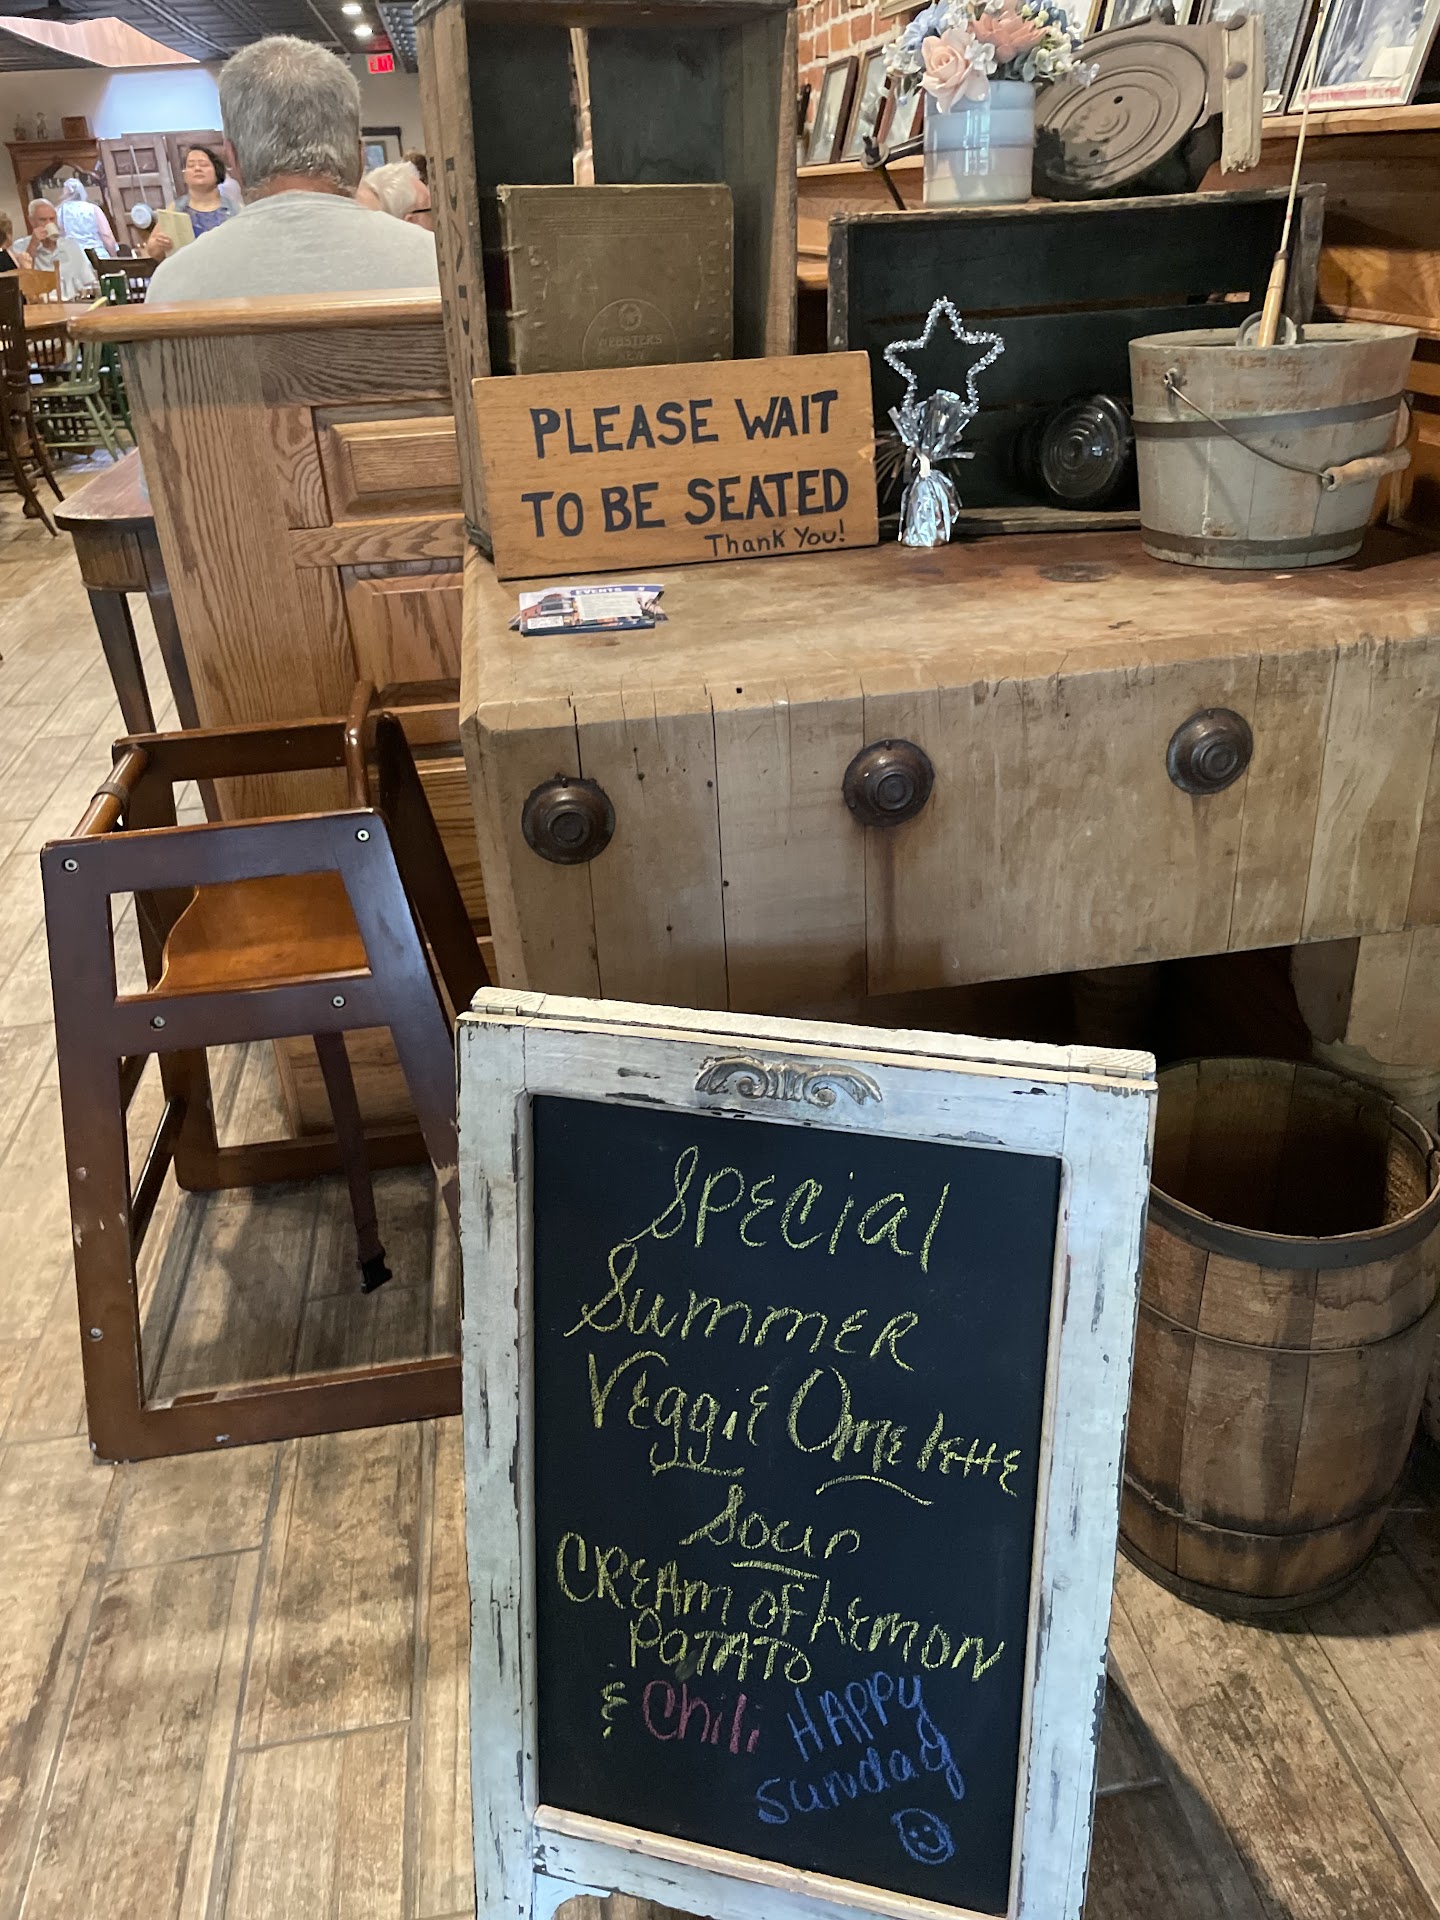 EXIT
WEBSTER'S
NEW
PLEASE WAIT
TO BE SEATED
Thank You!
EVENTS
Special
Summer
Veggie Omelette
Soup
CREAM OF LEMON
POTATO
& Chili HAPPY
Sunday